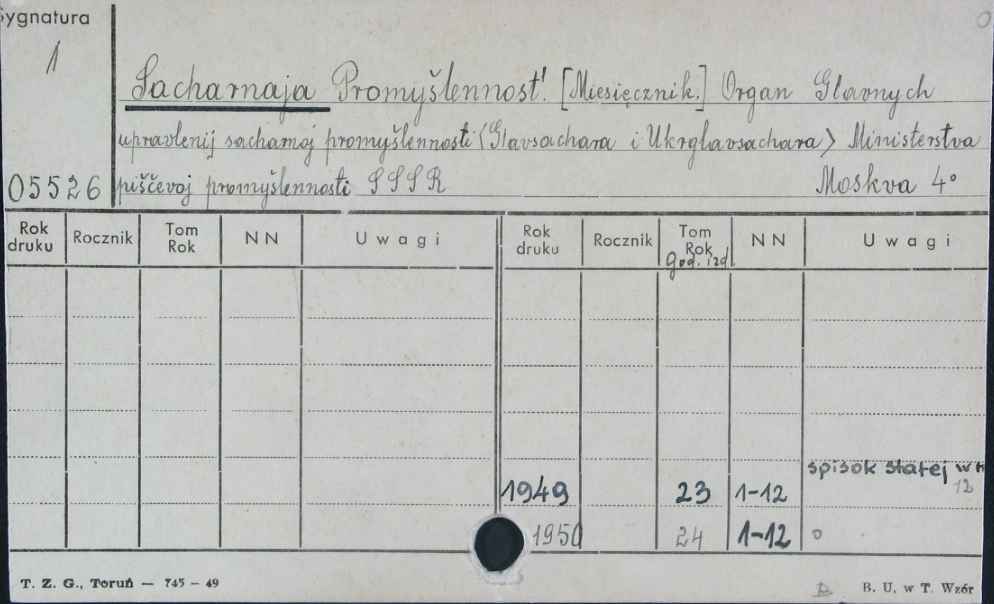 Sygnatura
1
05526
Sacharnaja Promyšlennost'. [Miesięcznik.] Organ Glavnych
upravlenij sacharnoj promyšlennosti (Glavsachara i Ukrglavsachara) Ministerstva
piščevoj promyšlennosti SSSR Moskva 4°
Rok druku Rocznik Tom Rok NN Uwagi Rok druku Rocznik Tom Rok God. izd. NN Uwagi
spisok statej w N
12
1949 23 1-12
1950 24 1-12 o
T. Z. G., Toruń — 745 - 49
B. U. w T. Wzór